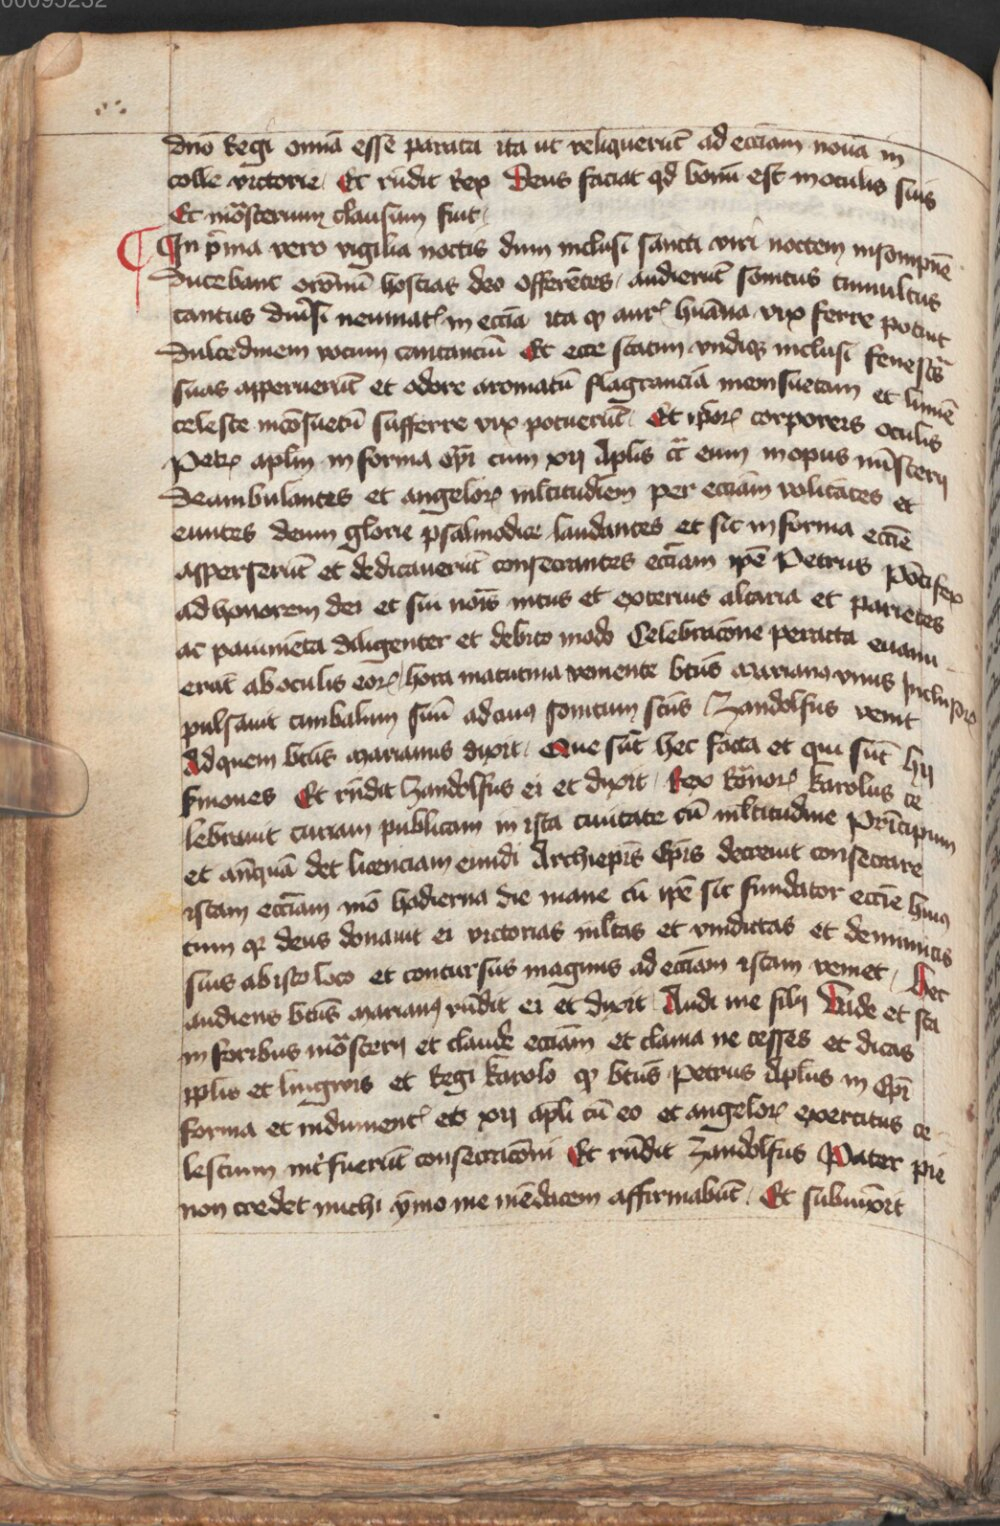 00095232
dno Regi omia esse parata ita ut reliquerut ad ecciam noua in
colle victorie Et rndit Rex Deus faciat qd bonu est in oculis suis
Et mosterium clausum fuit
In pma vero vigilia noctis dum inclusi sancti viri noctem insompne
Ducebant oronu hostias deo offerentes audierut sonitus tumultus
cantus diuersi neumat in eccia ita q aur humana vix ferre potuit
Dulcedinem vocum cantanciu Et ecce statim vndiq inclusi fenestras
suas apperuerut et odore aromatu flagrancia inconsuetam et lumē
celeste incosuetu sufferre vix potuerut Et ipor corporeis oculis
Petr aplm in forma epi cum xij Aplis cr eum in opus misterij
Deambulantes et angelor mltitudiem per ecciam volitates et
euntes deum glorie psalmodice laudantes et sic in forma eccie
asperserut et dedicauerut consecrantes ecciam ipe Petrus potifex
ad honorem dei et sui nois intus et exterius altaria et parietes
ac pauimeta diligenter et debito modo Celebracione peracta euanu
erat ab oculis eor hora matutina veniente btus Marianus vnus Inclusor
pulsauit cimbalum suu ad cuius sonitum scus Zandolfus venit
Ad quem btus Marianus dixit Que sut hec facta et qui sut hij
smones Et rndit Zandolfus ei et dixit Rex Romor karolus ce
lebrauit curiam publicam in ista ciuitate cu mltitudine principum
et anqua det licenciam eundi Archiepis Epis decreuit consecrare
istam ecciam mo hodierna die mane cu ipe sit fundator eccie huius
cum q deus donauit ei victorias mltas et vindictas et de inimicis
suis ab isto loco et concursus magnus ad ecciam istam veniet Hec
audiens btus Marianus rndit ei et dixit Audi me fili Vade et sta
in foribus mosterij et claude ecciam et clama ne cesses et dicas
pplis et lingwis et Regi karolo q btus Petrus Aplus in Epi
forma et indument et xij apli cu eo et angelor exercitus ce
lestium intfuerut consecracioni Et rndit Zandolfus Pater pie
non credet michi ymo me medacem affirmabut Et subiuxit